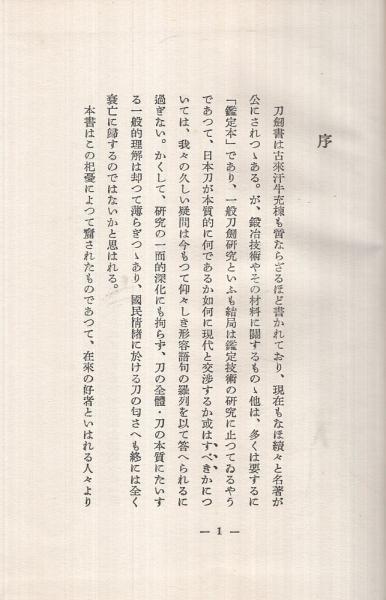 序
刀劍書は古來汗牛充棟も啻ならざるほど書かれており、現在もなほ續々と名著が
公にされつゝある。が、鍛冶技術やその材料に關するものゝ他は、多くは要するに
「鑑定本」であり、一般刀劍研究といふも結局は鑑定技術の研究に止つてゐるやう
であつて、日本刀が本質的に何であるか如何に現代と交渉するか或はすべきかにつ
いては、我々の久しい疑問は今もつて仰々しき形容語句の羅列を以て答へられるに
過ぎない。かくして、研究の一面的深化にも拘らず、刀の全體・刀の本質にたいす
る一般的理解は却つて薄らぎつゝあり、國民情緒に於ける刀の匂さへも終には全く
衰亡に歸するのではないかと思はれる。
本書はこの杞憂によつて齎されたものであつて、在來の好者といはれる人々より
— 1 —